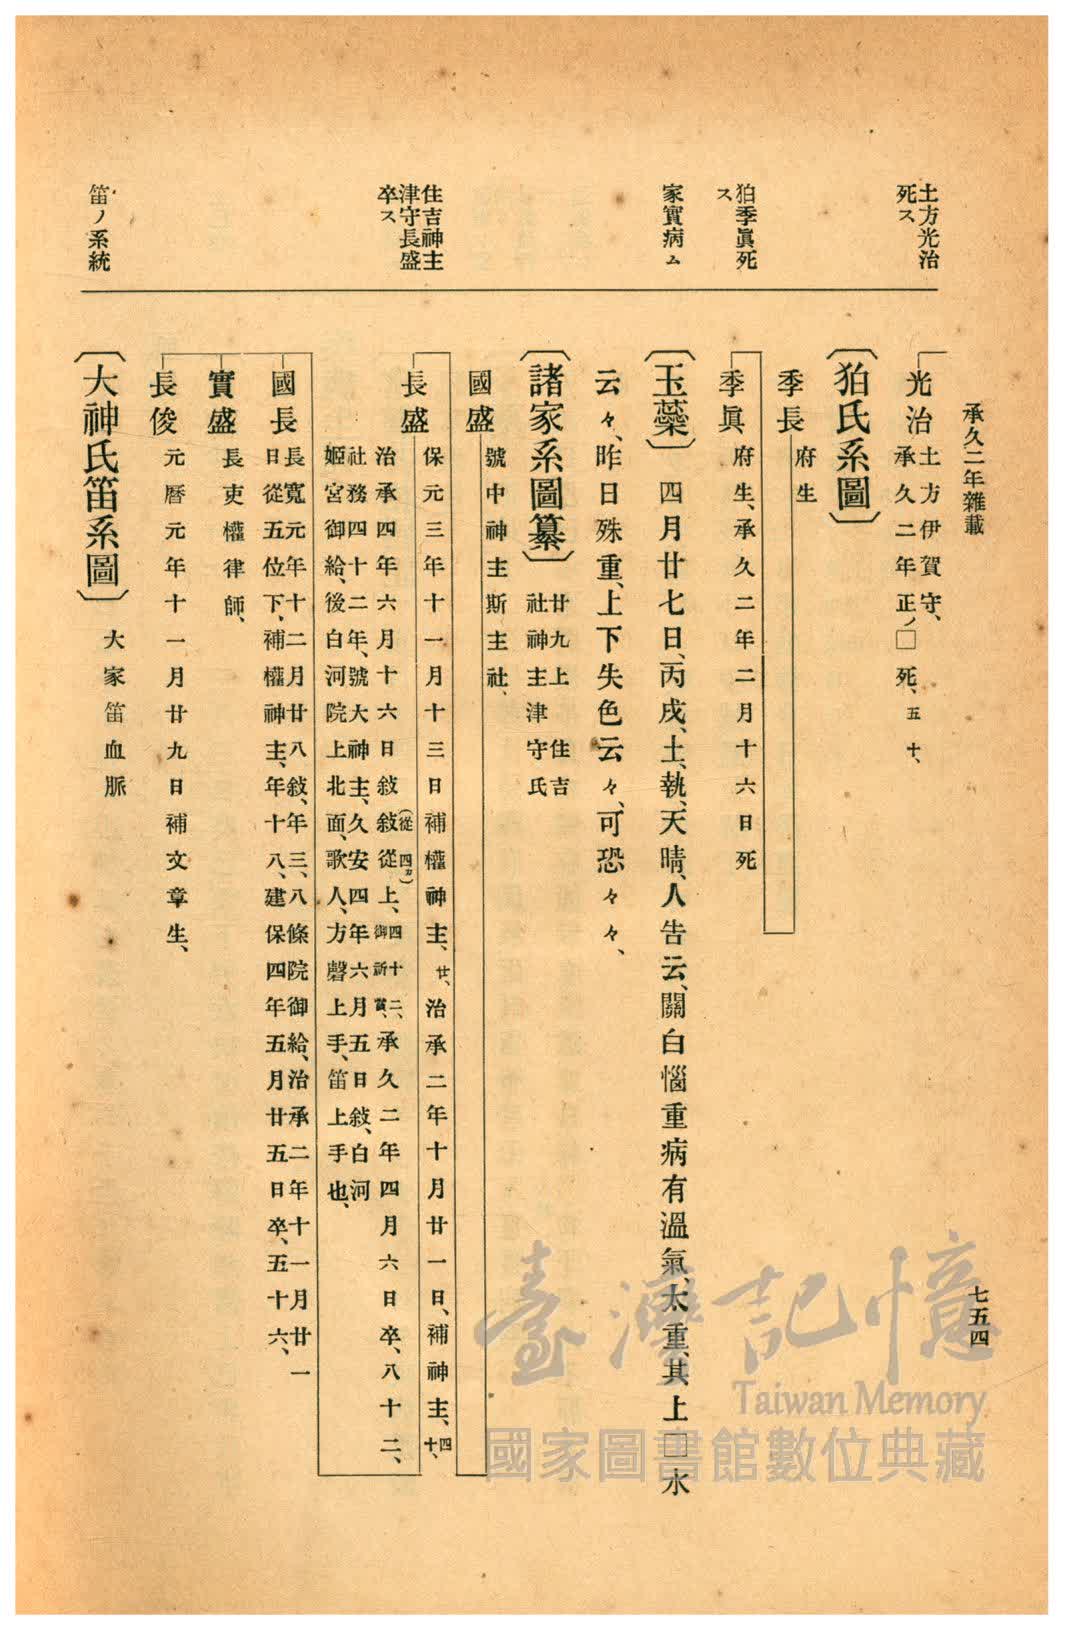 承久二年雜載
七五四
土方光治
死ス
狛季眞死
ス
家實病ム
住吉神主
津守長盛
卒ス
笛ノ系統
光治
土方伊賀守、
承久二年正ノ□死、五十、
〔狛氏系圖〕
季長
府生
季眞
府生、承久二年二月十六日死
〔玉蘂〕四月廿七日、丙戌、土、執、天晴、人告云、關白惱重病有溫氣、太重、其上□水
云々、昨日殊重、上下失色云々、可恐々々、
〔諸家系圖纂〕
廿九上 住吉
社神主津守氏
國盛
號中神主斯主社、
長盛
保元三年十一月十三日補權神主、廿、治承二年十月廿一日、補神主、四十、
治承四年六月十六日敍敍從上、(從四カ)四十二、御祈賞、承久二年四月六日卒、八十二、
社務四十二年、號大神主、久安四年六月五日敍、白河
姬宮御給、後白河院上北面、歌人、方磬上手、笛上手也、
國長
長寬元年十二月廿八敍、年三、八條院御給、治承二年十一月廿一
日從五位下、補權神主、年十八、建保四年五月廿五日卒、五十六、
實盛
長吏權律師、
長俊
元曆元年十一月廿九日補文章生、
〔大神氏笛系圖〕大家笛血脈
臺灣記憶
Taiwan Memory
國家圖書館數位典藏